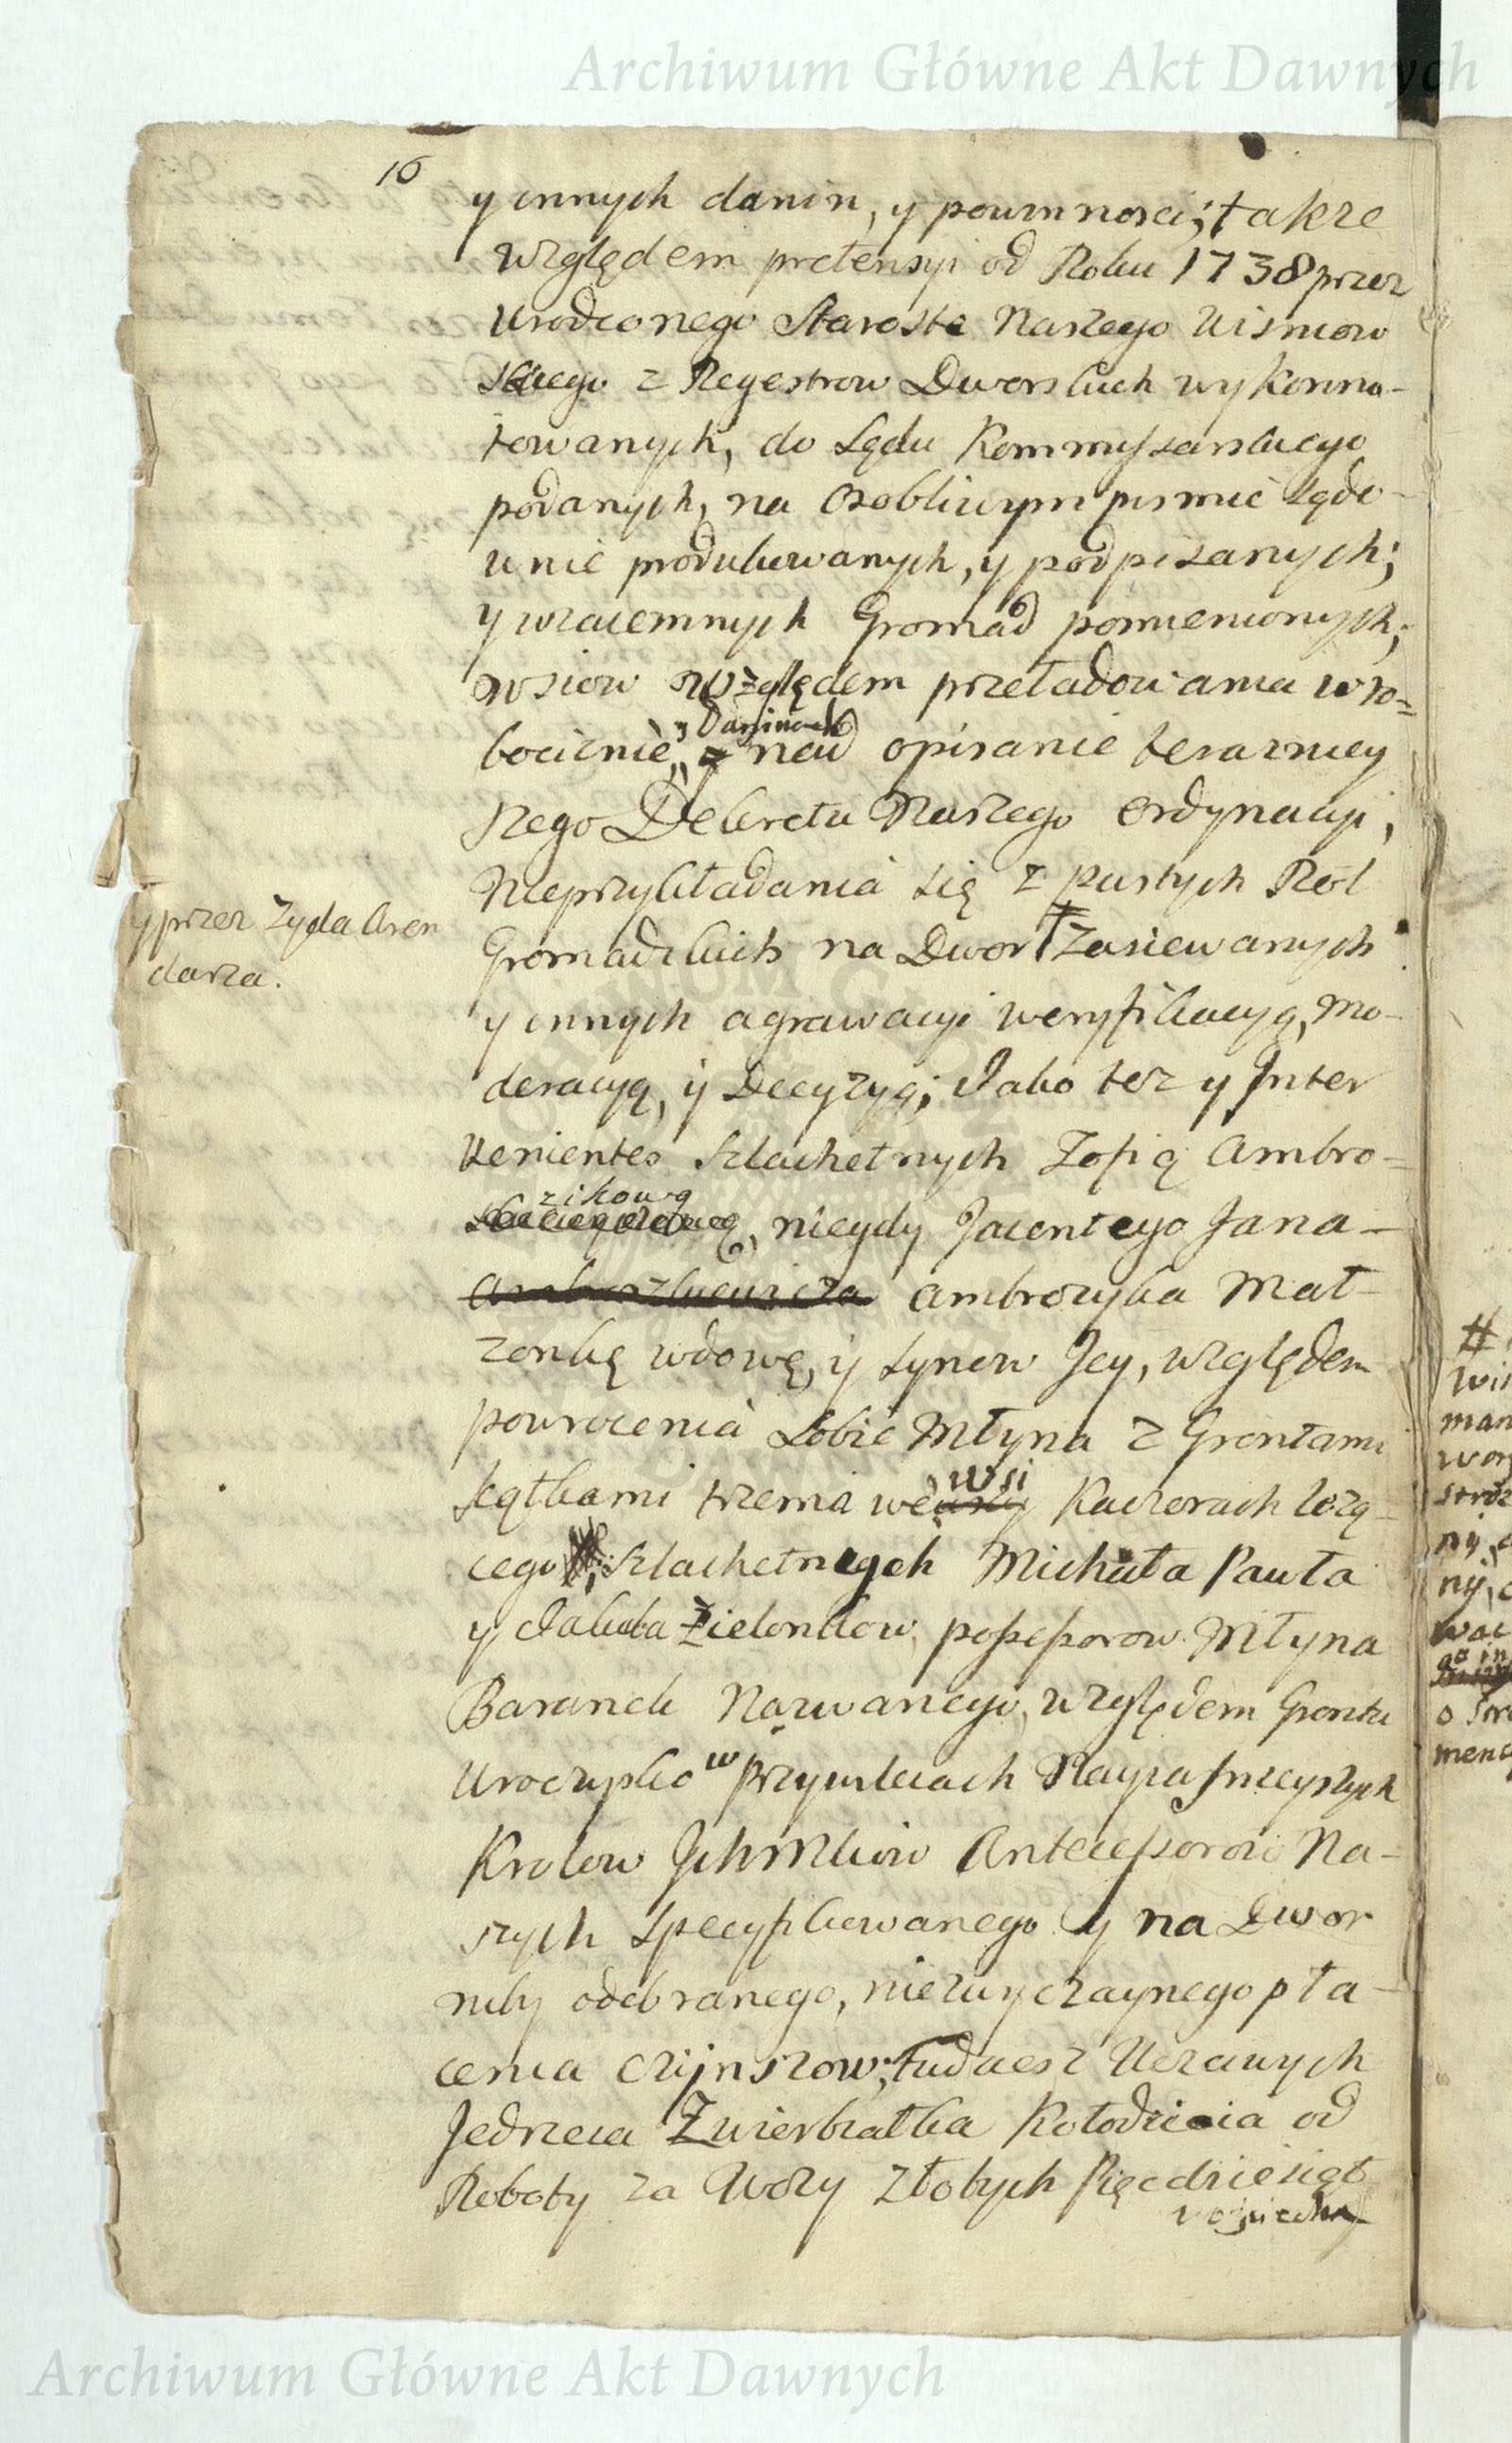 Archiwum Główne Akt Dawnych
16
y innych danin, y powinnosci; takze
względem pretensyi od Roku 1738 przez
Urodzonego Starostę Naszego Wisniow
skiego z Regestrow Dworskich wykonno-
towanych, do Sądu Kommyssarskiego
podanych, na osobliwym pismie Sądo-
wnie produkowanych, y podpisanych;
y wzaiemnych Gromad pomienionych;
wsiow względem przeładowania w ro-
y Daninach
bociznie, nad opisanie terazniey
szego Dekretu Naszego ordynacyi,
Nieprzykładania się z pustych Rol
Gromadzkich na Dwor ‡ zasiewanych
y przez Zyda Aren
darza.
y innych agrawacyi weryfikacyą, mo-
deracyą, y Decyzyą; Jako tez y Inter
venientes Szlachetnych Zofią Ambro-
zikową
niegdy Jacentego Jana
Ambrozyka Mał-
zonkę wdowę, y synow Jey, względem
powrocenia sobie Młyna z Grontami
kątkami trzema we wsi Kaczorach lezą-
cego; Szlachetnych Michała Pawła
y Jakuba Zielonkow, possessorow Młyna
Baranek Nazwanego, względem Grontu
Uroczysko w Przywileiach Nayiasnieyszych
Krolow Jchmciow Antecessorow Na-
szych specyfikowanego y na Dwor
niby odebranego, niezwyczaynego pła-
cenia czynszow; tudziesz Uczciwych
Jedrzeia Zwierbiałka Kołodzieia od
Roboty za Wozy złotych Pięcdziesiąt
woyciecha
#
Archiwum Główne Akt Dawnych